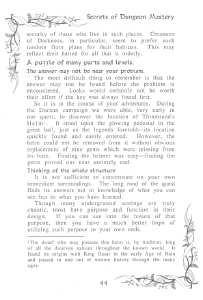 Secrets of Dungeon Mastery
security of those who live in such places. Creatures
of Darkness, in particular, seem to prefer such
random floor plans for their habitats. This may
reflect their hatred for all that is orderly.
A puzzle of many parts and levels.
The answer may not be near your problem.
The most difficult thing to remember is that the
answer may not be found before the problem is
encountered. Locks would certainly not be worth
their effort if the key was always found first.
So it is in the course of your adventures. During
the Dorian campaign we were able, very early in
our quest, to discover the location of
Helm. It stood upon the glowing pedestal in the
great hall, just as the legends foretold--its location
quickly found and easily entered. However, the
helm could not be removed from it without obvious
replacement of nine gems which were missing from
its base. Finding the helmet was easy--finding the
gems proved our near untimely end.
Thinking of the whole structure
It is not sufficient to concentrate on your own
immediate surroundings. The long road of the quest
finds its answers not in knowledge of what you can
see but in what you have learned.
Though many underground settings are truly
chaotic, most have purpose and function in their
design. If you can see into the reason of that
purpose, then you have a much better hope of
utilizing such purpose in your own ends.
The dwarf who may possess this helm is, by tradition, king
of all the dwarven nations throughout the known world. It
found its origins with King Daan in the early Age of Ruin
and passed in and out of known history through the many
ages.
44